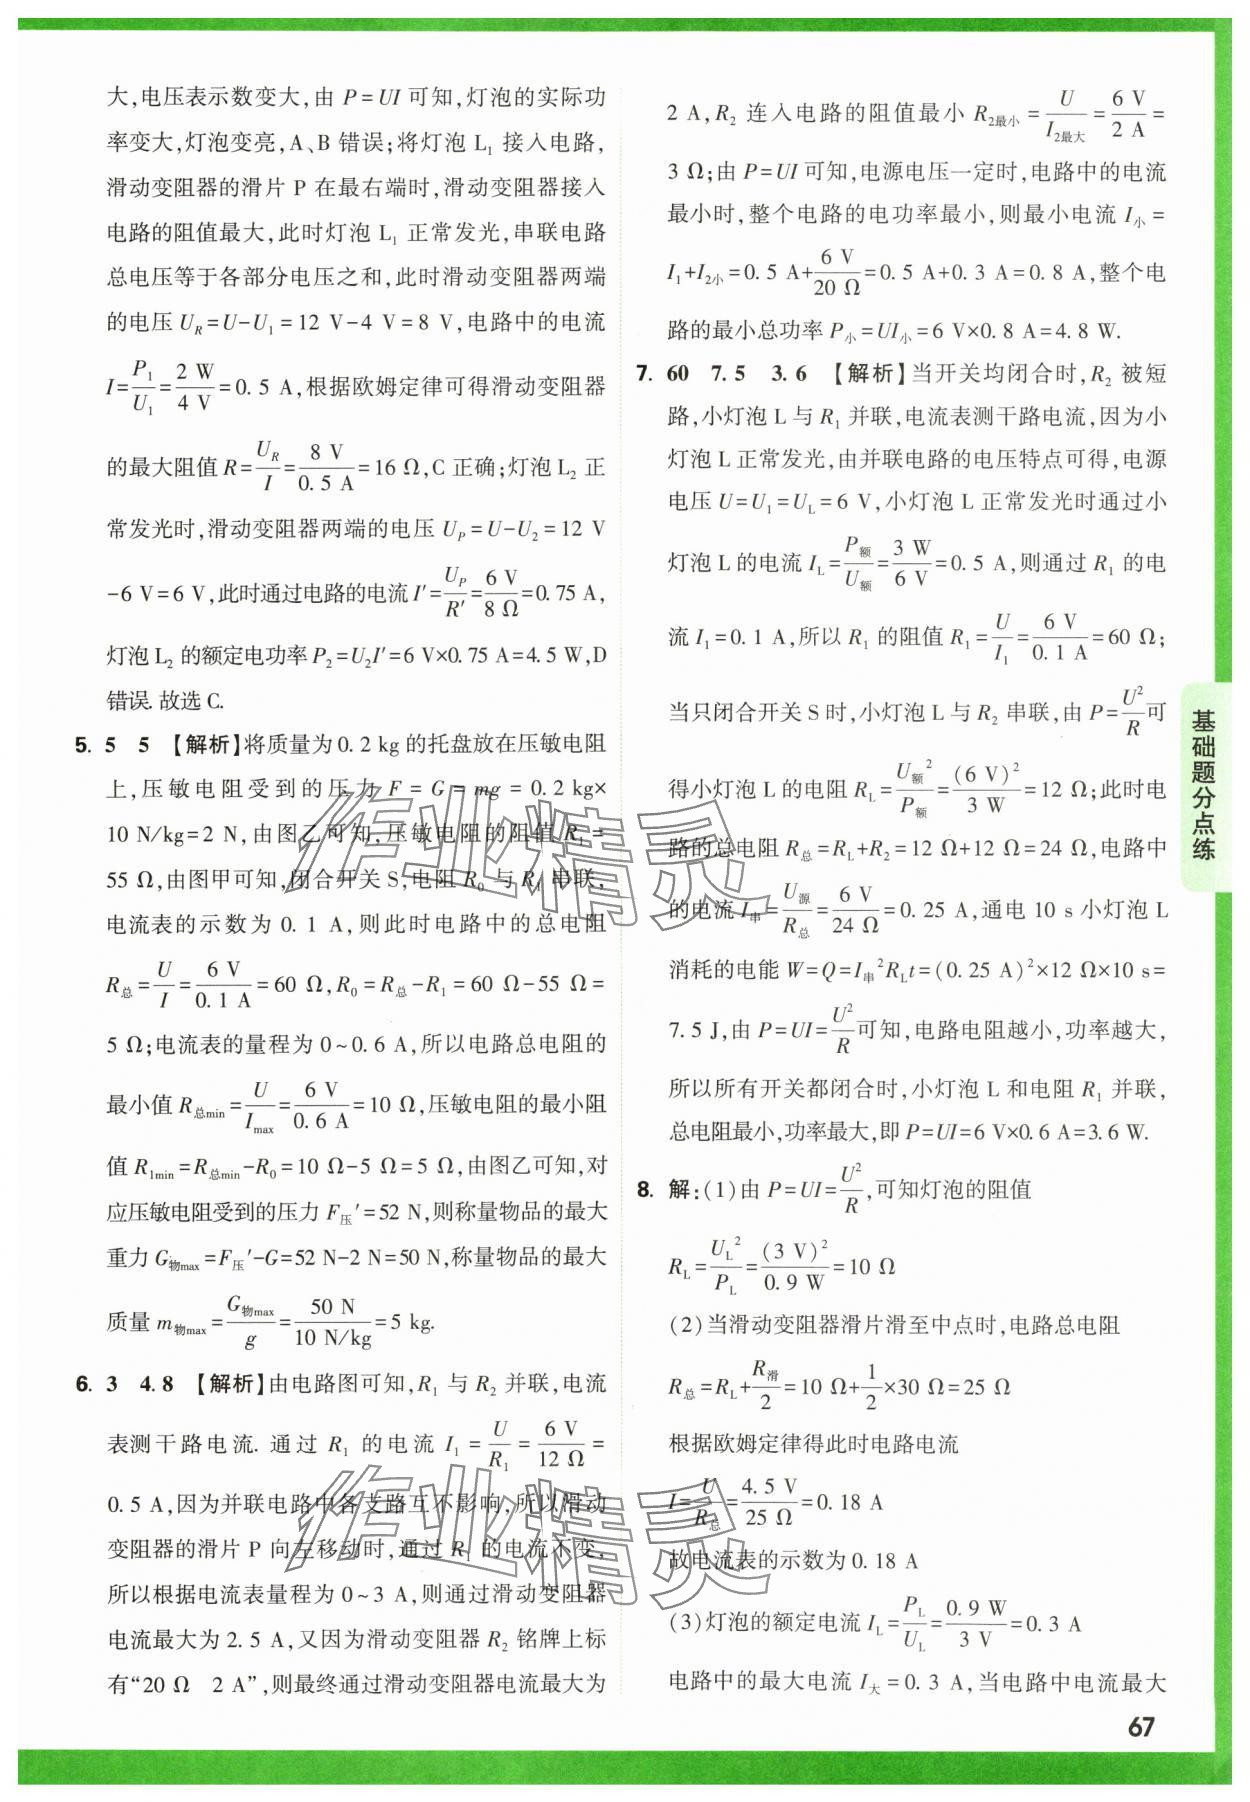 大,电压表示数变大,由 P=UI 可知,灯泡的实际功
率变大,灯泡变亮,A、B 错误;将灯泡 L₁ 接入电路,
滑动变阻器的滑片 P 在最右端时,滑动变阻器接入
电路的阻值最大,此时灯泡 L₁ 正常发光,串联电路
总电压等于各部分电压之和,此时滑动变阻器两端
的电压 U_R=U-U₁=12 V-4 V=8 V,电路中的电流
I=P₁/U₁=2 W/4 V=0.5 A,根据欧姆定律可得滑动变阻器
的最大阻值 R=U_R/I=8 V/0.5 A=16 Ω,C 正确;灯泡 L₂ 正
常发光时,滑动变阻器两端的电压 U_P=U-U₂=12 V
-6 V=6 V,此时通过电路的电流 I′=U_P/R′=6 V/8 Ω=0.75 A,
灯泡 L₂ 的额定电功率 P₂=U₂I′=6 V×0.75 A=4.5 W,D
错误. 故选 C.
5. 5 5 【解析】将质量为 0.2 kg 的托盘放在压敏电阻
上,压敏电阻受到的压力 F=G=mg=0.2 kg×
10 N/kg=2 N,由图乙可知,压敏电阻的阻值 R₁=
55 Ω,由图甲可知,闭合开关 S,电阻 R₀ 与 R₁ 串联,
电流表的示数为 0.1 A,则此时电路中的总电阻
R总=U/I=6 V/0.1 A=60 Ω,R₀=R总-R₁=60 Ω-55 Ω=
5 Ω;电流表的量程为 0~0.6 A,所以电路总电阻的
最小值 R总min=U/Imax=6 V/0.6 A=10 Ω,压敏电阻的最小阻
值 R1min=R总min-R₀=10 Ω-5 Ω=5 Ω,由图乙可知,对
应压敏电阻受到的压力 F压′=52 N,则称量物品的最大
重力 G物max=F压′-G=52 N-2 N=50 N,称量物品的最大
质量 m物max=G物max/g=50 N/10 N/kg=5 kg.
6. 3 4.8 【解析】由电路图可知,R₁ 与 R₂ 并联,电流
表测干路电流. 通过 R₁ 的电流 I₁=U/R₁=6 V/12 Ω=
0.5 A,因为并联电路中各支路互不影响,所以滑动
变阻器的滑片 P 向左移动时,通过 R₁ 的电流不变,
所以根据电流表量程为 0~3 A,则通过滑动变阻器
电流最大为 2.5 A,又因为滑动变阻器 R₂ 铭牌上标
有“20 Ω 2 A”,则最终通过滑动变阻器电流最大为
2 A,R₂ 连入电路的阻值最小 R2最小=U/I2最大=6 V/2 A=
3 Ω;由 P=UI 可知,电源电压一定时,电路中的电流
最小时,整个电路的电功率最小,则最小电流 I小=
I₁+I2小=0.5 A+6 V/20 Ω=0.5 A+0.3 A=0.8 A,整个电
路的最小总功率 P小=UI小=6 V×0.8 A=4.8 W.
7. 60 7.5 3.6 【解析】当开关均闭合时,R₂ 被短
路,小灯泡 L 与 R₁ 并联,电流表测干路电流,因为小
灯泡 L 正常发光,由并联电路的电压特点可得,电源
电压 U=U₁=U_L=6 V,小灯泡 L 正常发光时通过小
灯泡 L 的电流 I_L=P额/U额=3 W/6 V=0.5 A,则通过 R₁ 的电
流 I₁=0.1 A,所以 R₁ 的阻值 R₁=U/I₁=6 V/0.1 A=60 Ω;
当只闭合开关 S 时,小灯泡 L 与 R₂ 串联,由 P=U²/R可
得小灯泡 L 的电阻 R_L=U额²/P额=(6 V)²/3 W=12 Ω;此时电
路的总电阻 R总=R_L+R₂=12 Ω+12 Ω=24 Ω,电路中
的电流 I串=U源/R总=6 V/24 Ω=0.25 A,通电 10 s 小灯泡 L
消耗的电能 W=Q=I串²R_Lt=(0.25 A)²×12 Ω×10 s=
7.5 J,由 P=UI=U²/R可知,电路电阻越小,功率越大,
所以所有开关都闭合时,小灯泡 L 和电阻 R₁ 并联,
总电阻最小,功率最大,即 P=UI=6 V×0.6 A=3.6 W.
8. 解:(1)由 P=UI=U²/R,可知灯泡的阻值
R_L=U_L²/P_L=(3 V)²/0.9 W=10 Ω
(2)当滑动变阻器滑片滑至中点时,电路总电阻
R总=R_L+R滑/2=10 Ω+1/2×30 Ω=25 Ω
根据欧姆定律得此时电路电流
I=U/R总=4.5 V/25 Ω=0.18 A
故电流表的示数为 0.18 A
(3)灯泡的额定电流 I_L=P_L/U_L=0.9 W/3 V=0.3 A
电路中的最大电流 I大=0.3 A,当电路中电流最大
基础题分点练
67
作业精灵
作业精灵